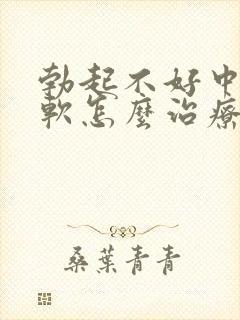 勃起不好中
軟怎麼治療
桑葉青青